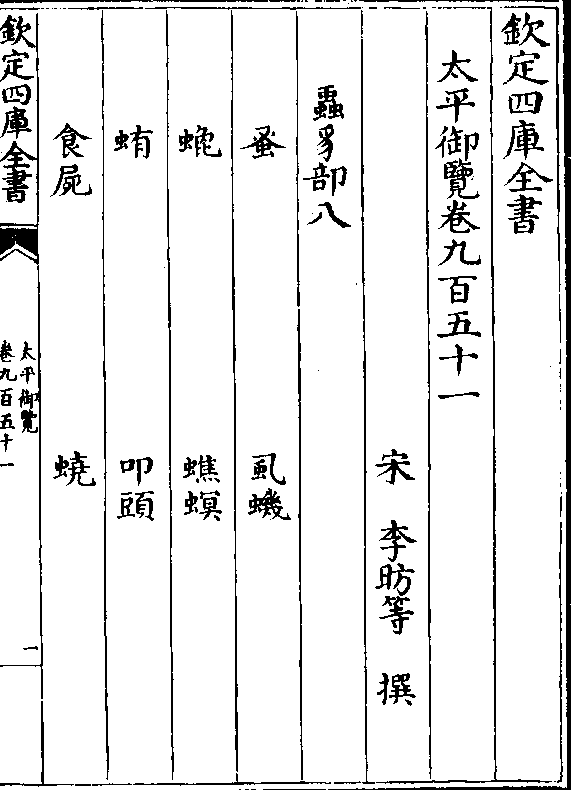 欽定四庫全書
太平御覽卷九百五十一
宋　李昉等　撰
蟲豸部八
蚤　虱蟣
螕　蟭螟
蛕　叩頭
食屍　蟯
欽定四庫全書
太平御覽
卷九百五十一
一